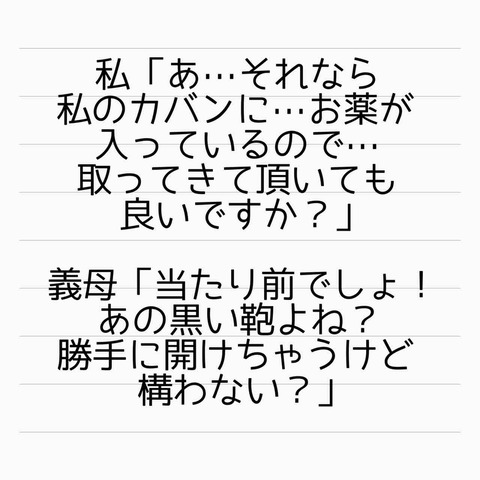 私「あ…それなら
私のカバンに…お薬が
入っているので…
取ってきて頂いても
良いですか？」
義母「当たり前でしょ！
あの黒い鞄よね？
勝手に開けちゃうけど
構わない？」